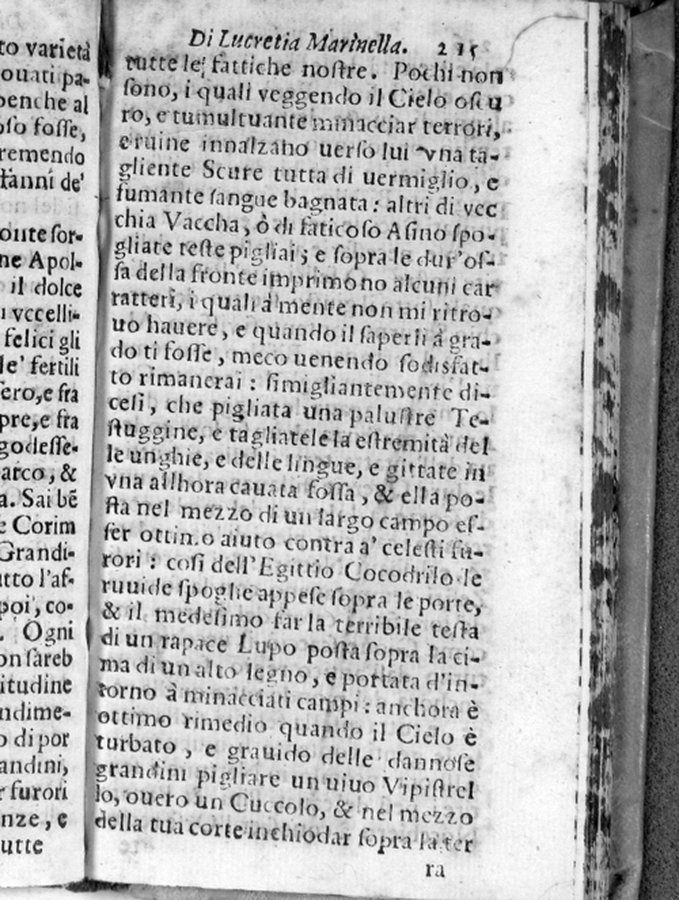 to varietà
ouati pa-
benche al
oſo foſſe,
remendo
ffanni de'
onte ſor-
ne Apol-
il dolce
i vccelli-
felici gli
le' fertili
fero, e fra
pre, e fra
godeſſe-
arco, &
a. Sai bẽ
e Corim
Grandi-
utto l'af-
poi, co-
. Ogni
on ſareb
itudine
ndime-
o di por
andini,
r furori
nze, e
utte
Di Lucretia Marinella. 215
tutte le fattiche noſtre. Pochi non
ſono, i quali veggendo il Cielo oſcu
ro, e tumultuante minacciar terrori,
e ruine innalzano uerſo lui vna ta-
gliente Scure tutta di uermiglio, e
fumante ſangue bagnata: altri di vec
chia Vaccha, ò di faticoſo Aſino ſpo-
gliate teſte pigliai; e ſopra le dur'oſ-
ſa della fronte imprimono alcuni car
ratteri, i quali à mente non mi ritro-
uo hauere, e quando il ſaperli à gra-
do ti foſſe, meco uenendo ſodisfat-
to rimanerai: ſimigliantemente di-
ceſi, che pigliata una paluſtre Te-
ſtuggine, e tagliatele la eſtremità del
le unghie, e delle lingue, e gittate in
vna allhora cauata foſſa, & ella po-
ſta nel mezzo di un largo campo eſ-
ſer ottimo aiuto contra a' celeſti fu-
rori: coſi dell'Egittio Cocodrilo le
ruuide ſpoglie appeſe ſopra le porte,
& il medeſimo far la terribile teſta
di un rapace Lupo poſta ſopra la ci-
ma di un alto legno, e portata d'in-
torno à minacciati campi: anchora è
ottimo rimedio quando il Cielo è
turbato, e grauido delle dannoſe
grandini pigliare un uiuo Vipiſtrel
lo, ouero un Cuccolo, & nel mezzo
della tua corte inchiodar ſopra la ter
ra